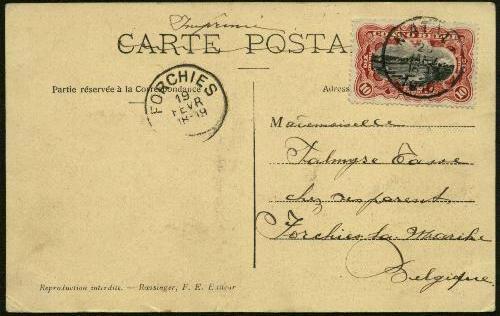 Imprimé
CARTE POSTA
Partie réservée à la Correspondance
Adres
FORCHIES
19
FEVR
18-19
10 10
Mademoiselle
Palmyre
chez ses parents
Forchies la Marche
Belgique
Reproduction interdite. — Rœssinger, F. E. Editeur